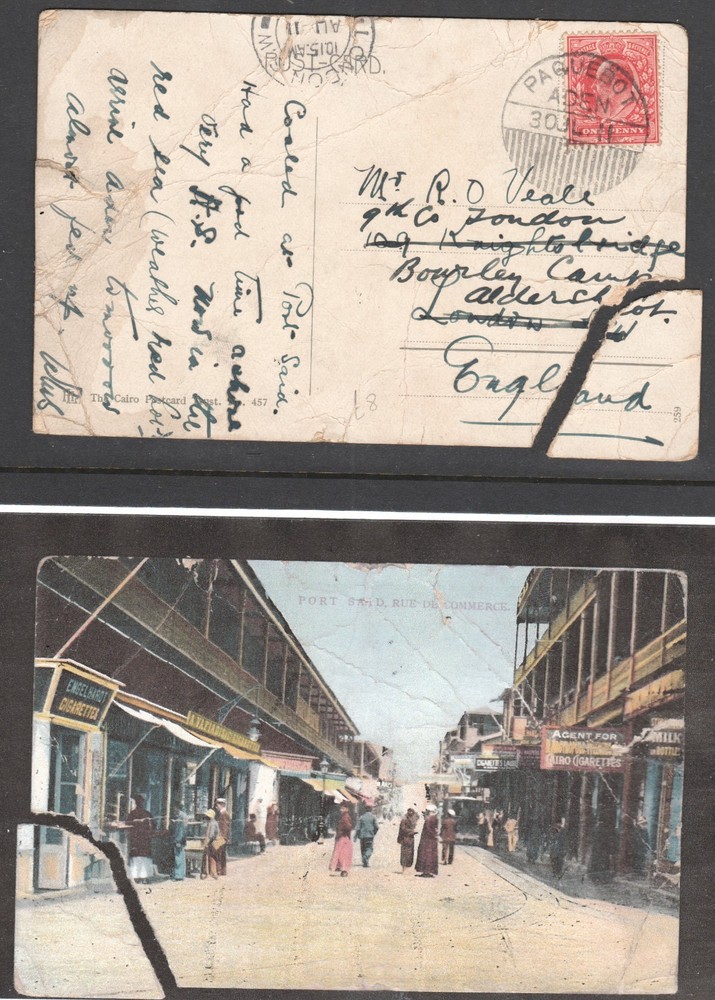 POST-CARD.
10.15 AM
AU 11
PAQUEBOT
ADEN
30 JL 11
ONE PENNY
Coaled at Port Said.
Had a good time ashore
Very H.S. Now in the
red sea (weather red hot)
arrive aden tomorrow
almost fed up.
Mr R. O Veale
9th Co London
109 Knightsbridge
Bourley Camp
Aldershot.
London S W
England
The Cairo Postcard 457
28
259
PORT SAID, RUE DE COMMERCE.
ENGELHARDT
CIGARETTES
AGENT FOR
CAIRO CIGARETTES
MILK
BOTTLE